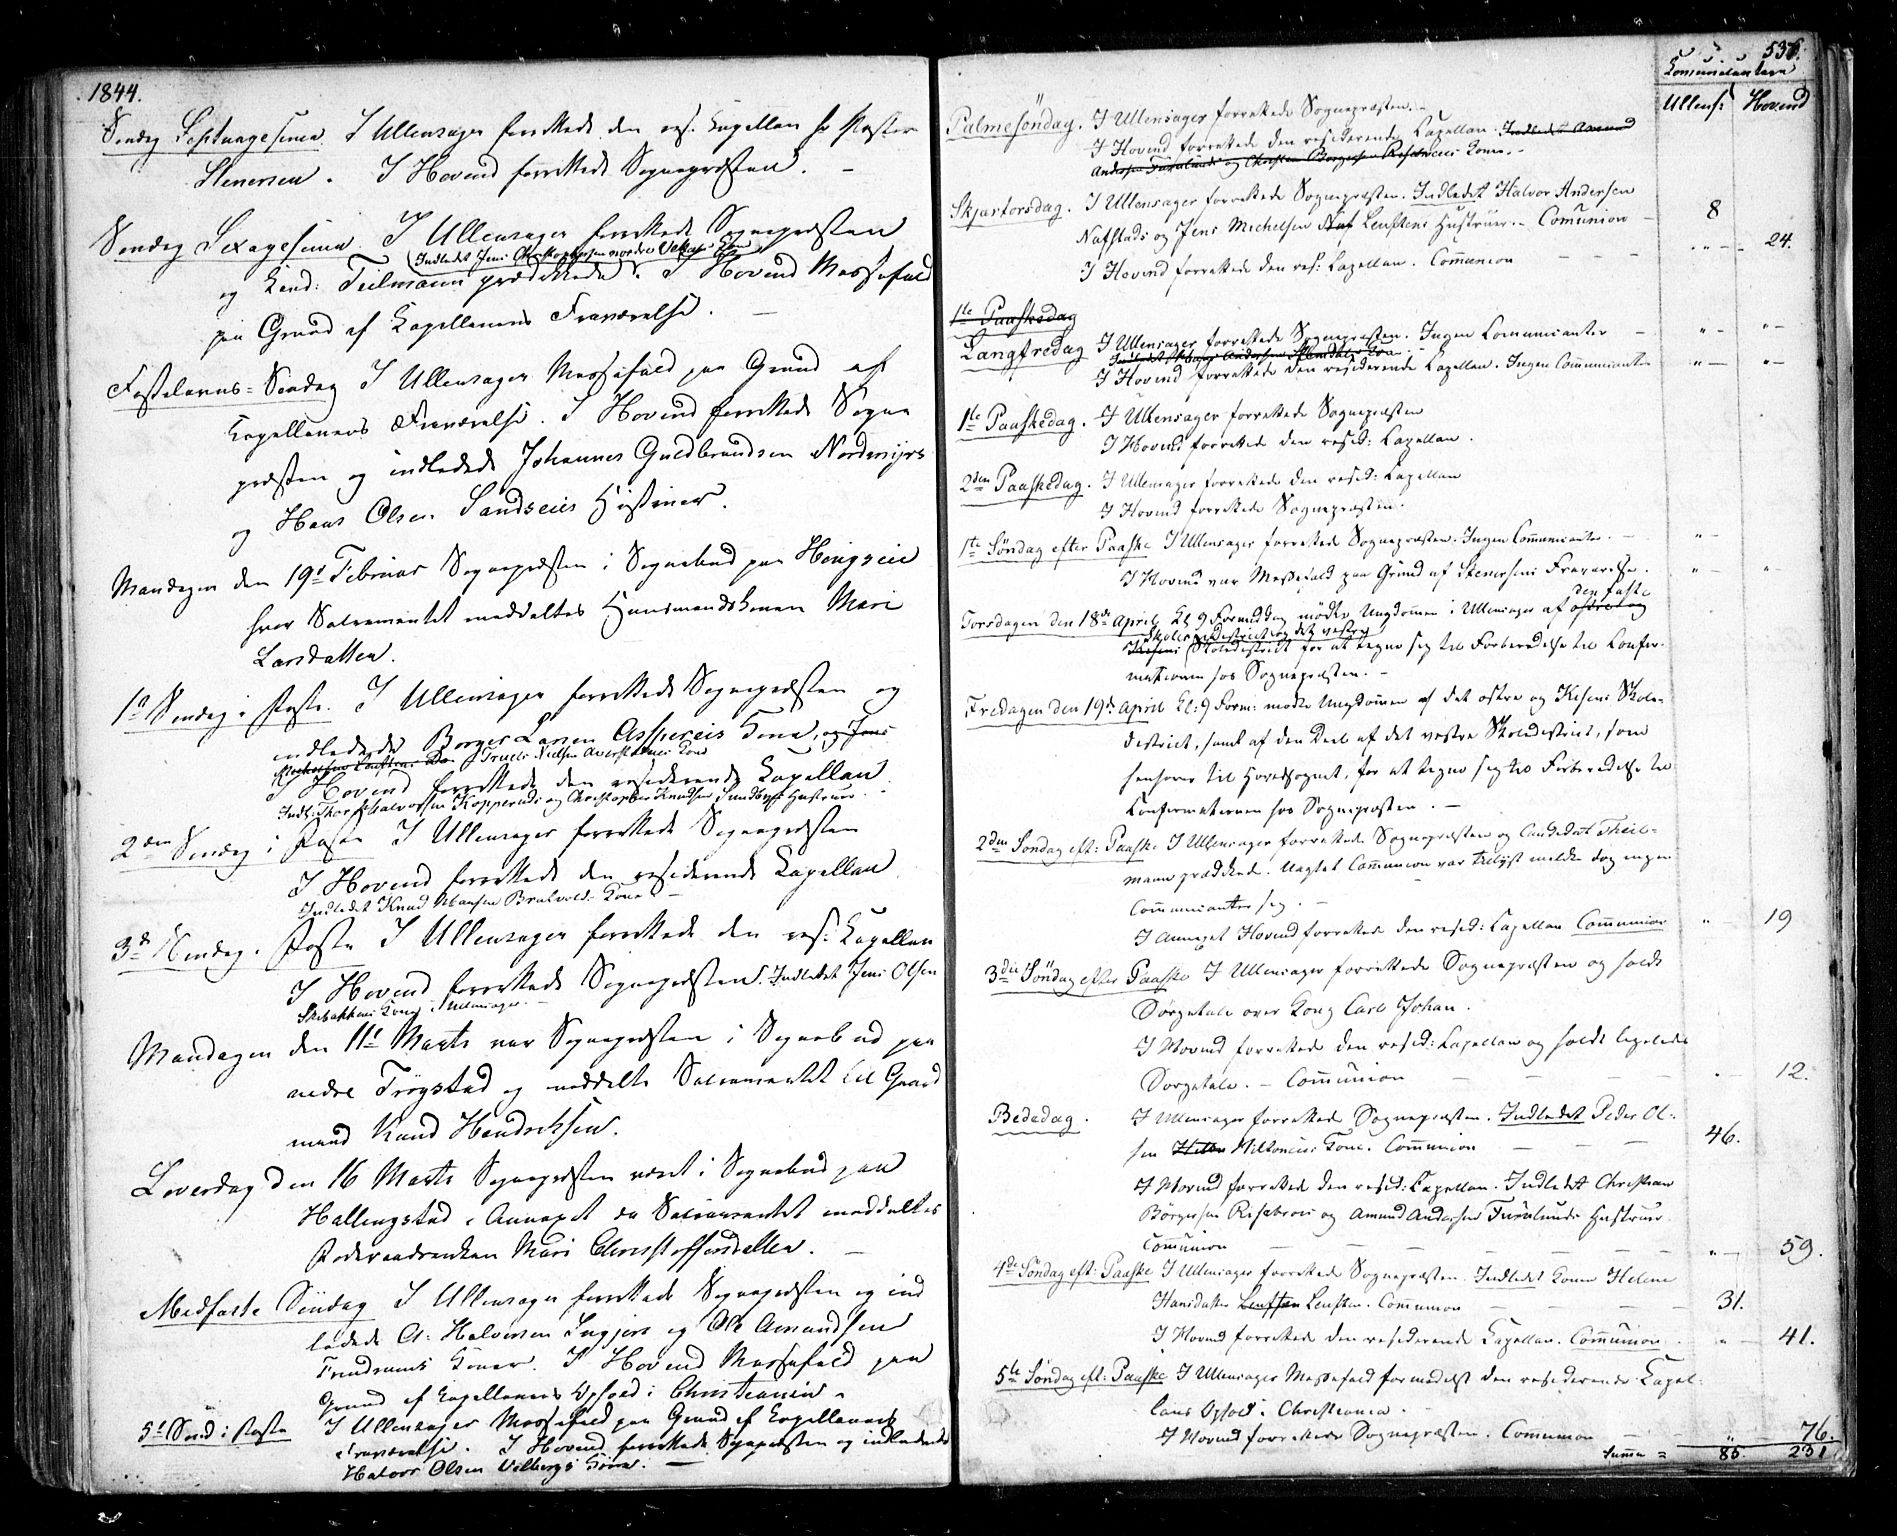 1844.
Søndag Septuagesima. I Ullensager forrettede den res: Capellan Hr Pastor
Stenersen. I Hovind forrettede Sognepræsten. –
Søndag Sexagesima. I Ullensager forrettede Sognepræsten
og Cand: Teilmann prædikede. I Hovind Messefald
paa Grund af Capellanens Fraværelse. –
Fastelavns-Søndag I Ullensager Messefald paa Grund af
Capellanens Fraværelse. I Hovind forrettede Sogne
præsten og indledede Johannes Guldbrandsen Nordmyrs
og Hans Olsen Sandseies Hustruer.
Mandagen den 19de Februar Sognepræsten i Sognebud paa
hvor Sacramentet meddeltes Huusmandskonen Mari
Larsdatter.
1ste Søndag i Faste. I Ullensager forrettede Sognepræsten og
indledede Borger Larsen Asspereies Kone, og Jens
Truels Nielsen Kone
I Hovind forrettede den residerende Capellan.
Indl: Thor Halvorsen Kopperuds og Christopher Knudsen Sundbyes Hustruer. –
2den Søndag i Faste I Ullensager forrettede Sognepræsten
I Hovind forrettede den residerende Capellan.
Indledet Knud Hansen Bratvolds Kone –
3de Søndag i Faste I Ullensager forrettede den res: Capellan
I Hovind forrettede Sognepræsten. Indledet Jens Olsen
Skibakkens Kone i Ullensager. –
Mandagen den 11te Marts var Sognepræsten i Sognebud paa
nedre Trøgstad og meddelte Sacramentet til Gaard
mand Knud Hendriksen.
Løverdag den 16 Marts Sognepræsten været i Sognebud paa
Hallingstad i Annexet da Sacramentet meddeltes
Føderaadsenken Mari Christoffersdatter. –
Midfaste Søndag I Ullensager forrettede Sognepræsten og ind
ledede A: Halvorsen og Ole Amundsen
Koner. I Hovind Messefald paa
Grund af Capellanens Ophold i Christiania.
5te Sønd: i Faste I Ullensager Messefald paa Grund af Capellanens
Fraværelse. I Hovind forrettede Sognepræsten og indledede
Halvor Olsen Vilbergs Kone. –
536.
Comunicantere
Ullens: Hovind
Palmesöndag. I Ullensager forrettede Sognepræsten. –
I Hovind forrettede den residerende Capellan. Indledet Amund
Andersen Furulunds og Christen Borgersen Koner. –
Skjærtorsdag. I Ullensager forrettede Sognepræsten. Indledet Halvor Andersen
Nafstads og Jens Michelsen Naf Leufstens Hustruer. – Comunion – 8
I Hovind forrettede den res: Capellan. Comunion – – – „ – 24.
1te Paaskedag
Langfredag I Ullensager forrettede Sognepræsten. Ingen Comunicanter – „ – „ –
I Hovind forrettede den residerende Capellan. Ingen Communicanter „ – „ –
1te Paaskedag. I Ullensager forrettede Sognepræsten
I Hovind forrettede den resid: Capellan.
2den Paaskedag. I Ullensager forrettede den resid: Capellan
I Hovind forrettede Sognepræsten.
1te Söndag efter Paaske I Ullensager forrettede Sognepræsten. Ingen Communicanter. – „ –
I Hovind var Messefald paa Grund af Stenersens Fraværelse. „ – „ –
den faste
Torsdagen den 18de April Kl 9 Formiddag mödte Ungdommen i Ullensager af östre og
Skoledistrict og det vestre
Kisens Skoledistrict for at tegne sig til Forberedelse til Confir-
mationen hos Sognepræsten. –
Fredagen den 19de April Kl: 9 Form: mödte Ungdommen af det östre og Kisens Skole-
district, samt af den Deel af det vestre Skoledistrict, som
henhører til Hovedsognet, for at tegne sig til Forberedelse til
Confirmationen hos Sognepræsten. –
2den Søndag eft: Paaske I Ullensager forrettede Sognepræsten og Candidat Theil-
mann prædikede. Uagtet Communion var tillyst meldte dog ingen
Communicanter sig. –
I Annexet Hovind forrettede den resid: Capellan Communion „ – 19
3die Söndag efter Paaske I Ullensager forrettede Sognepræsten og holdt
Sörgetale over Kong Carl Johan.
I Hovind forrettede den resid: Capellan og holdt ligeledes
Sorgetale. – Communion – – – „ – 12.
Bededag. I Ullensager forrettede Sognepræsten. Indledet Peder Ol-
sen Kone. Communion – – – 46.
I Hovind forrettede den resid: Capellan. Indledet Christian
Börgersen og Amund Andersen Furulunds Hustruer.
Communion – – – „ – 59.
4de Söndag eft: Paaske I Ullensager forrettede Sognepræsten. Indledet Konen Helene
Hansdatter Leufsten Leufsten. Communion – – – 31.
I Hovind forrettede den residerende Capellan. Communion. „ – 41.
5te Søndag eft: Paaske I Ullensager Messefald formedelst den residerende Capel-
lans Ophold i Christiania.
I Hovind forrettede Sognepræsten. Communion – „ 76.
Summa = 85. 231